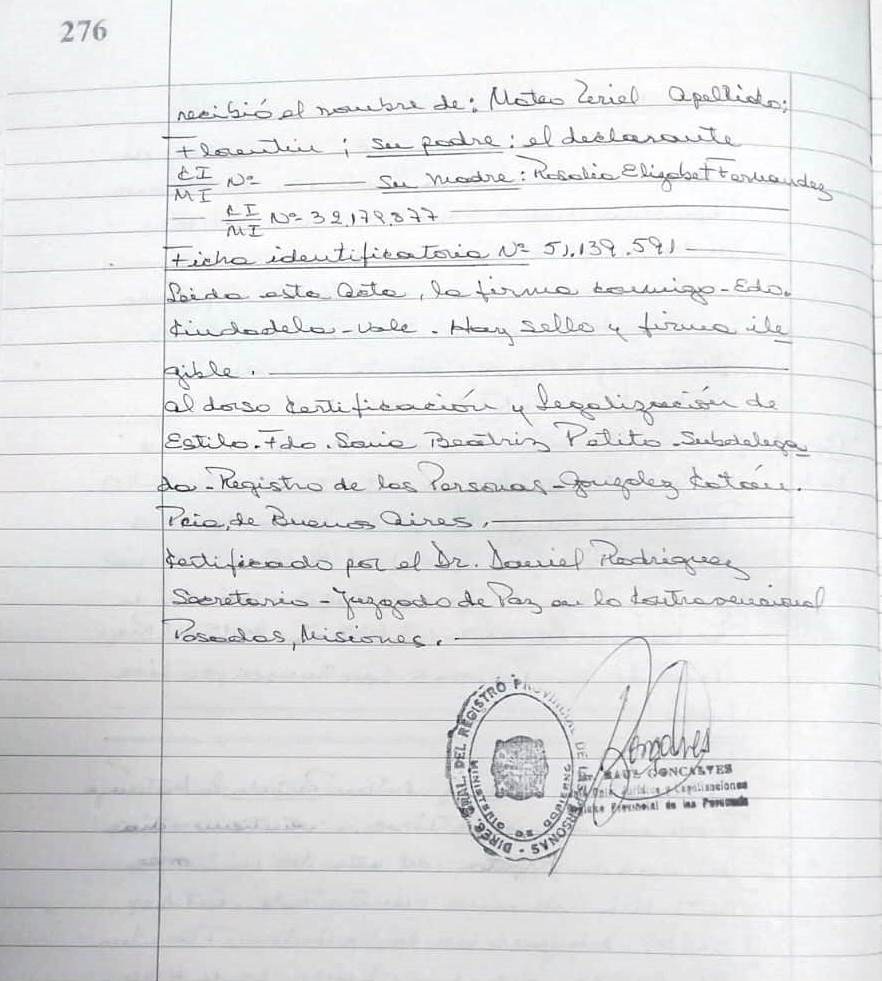 276
recibió el nombre de: Mateo Zeriel Apellido:
Florentin ; su padre: el declarante
CI
MI Nº ——— Su madre: Rosalia Elizabet Fernandez
CI
MI Nº 32.179.877
Ficha identificatoria Nº 51.139.591
Leida esta Acta, la firma conmigo - Edo.
Ciudadela - vale. Hay sello y firma ile
gible.
al dorso Certificación y Legalización de
Estilo. Fdo. Sonia Beatriz Polito - Subdelega
da - Registro de las Personas - Gonzalez Catán.
Pcia, de Buenos Aires.
Certificado por el Dr. Daniel Rodriguez
Secretario - Juzgado de Paz en lo Contravencional
Posadas, Misiones.
DIREC. GRAL. DEL REGISTRO PROVINCIAL DE LAS PERSONAS
MINISTERIO DE GOBIERNO
RAUL GONCALVES
Jurídica y Legalizaciones
Provincial de las Personas